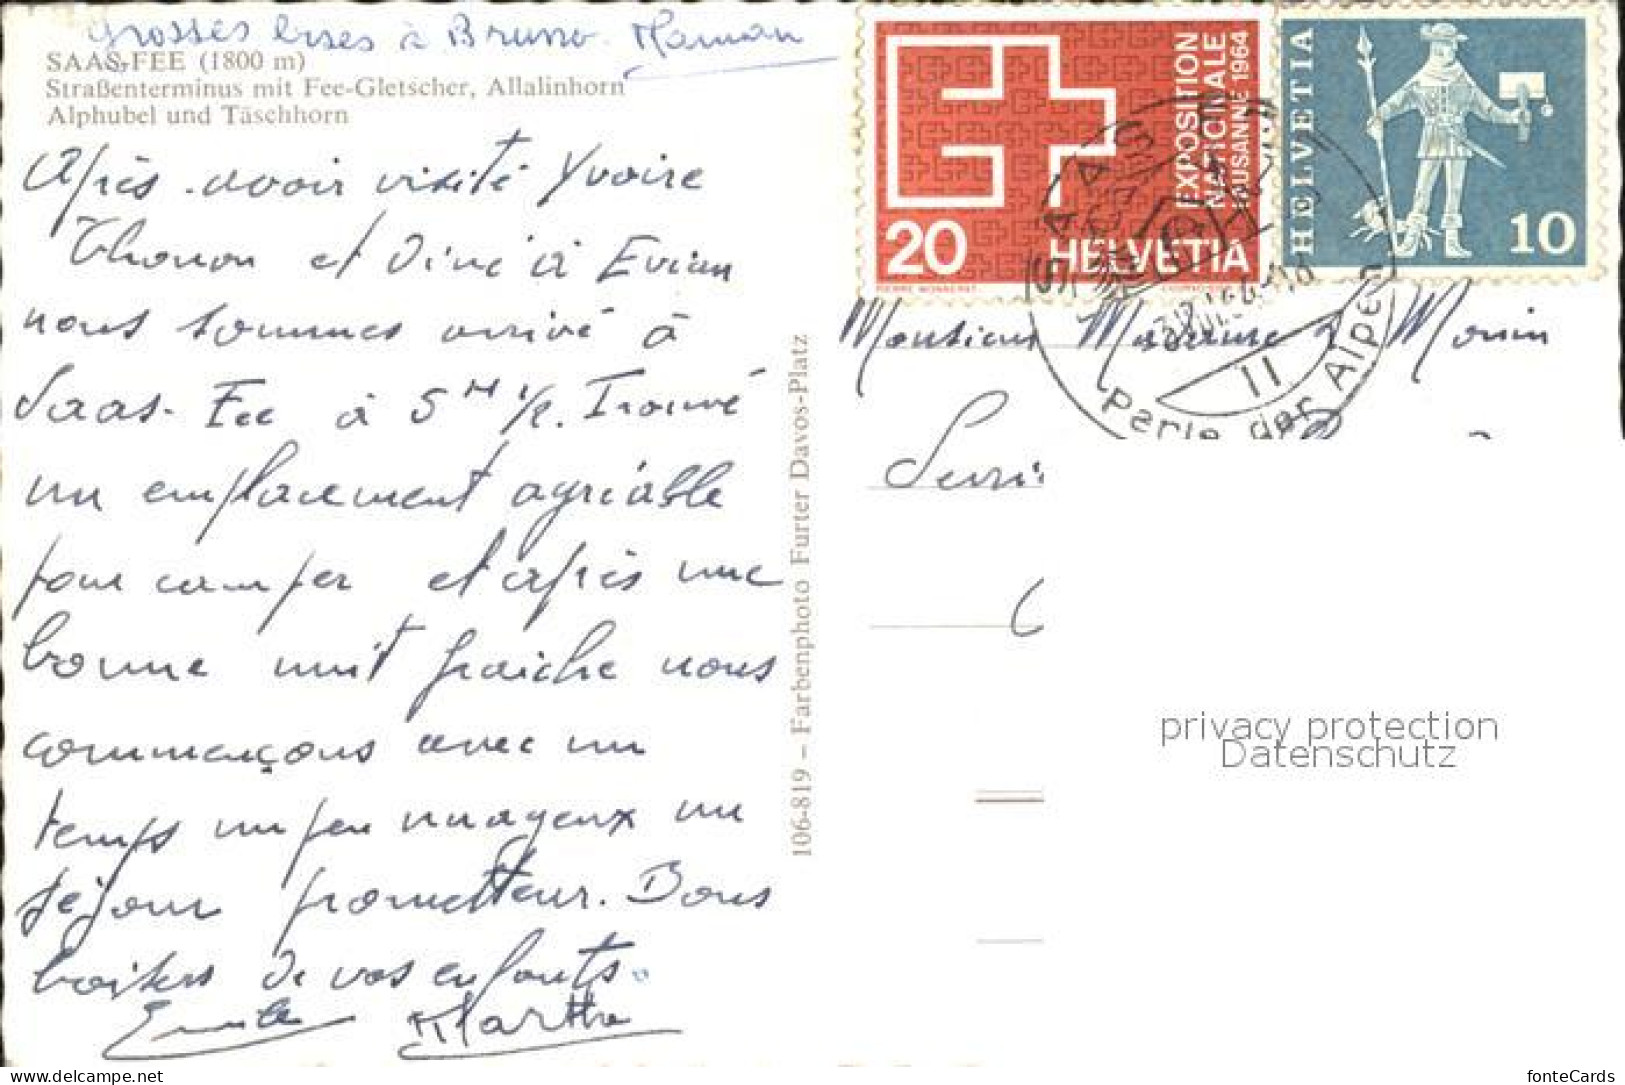 Grosses bises à Bruno. Maman
SAAS-FEE (1800 m)
Straßenterminus mit Fee-Gletscher, Allalinhorn
Alphubel und Täschhorn
Après avoir visité Yvoire
Thonon et diné à Evian
nous sommes arrivé à
Saas-Fee à 5 H 1/2. Trouvé
un emplacement agréable
pour camper et après une
bonne nuit fraiche nous
commençons avec un
temps un peu nuageux un
séjour prometteur. Bons
baisers de vos enfants.
Emile Marthe
106-819 – Farbenphoto Furter Davos-Platz
EXPOSITION
NATIONALE
LAUSANNE 1964
20 HELVETIA
HELVETIA
10
SAAS
Perle der Alpen
11
Monsieur Madame Monin
privacy protection
Datenschutz
https://www.delcampe.net
fonteCards